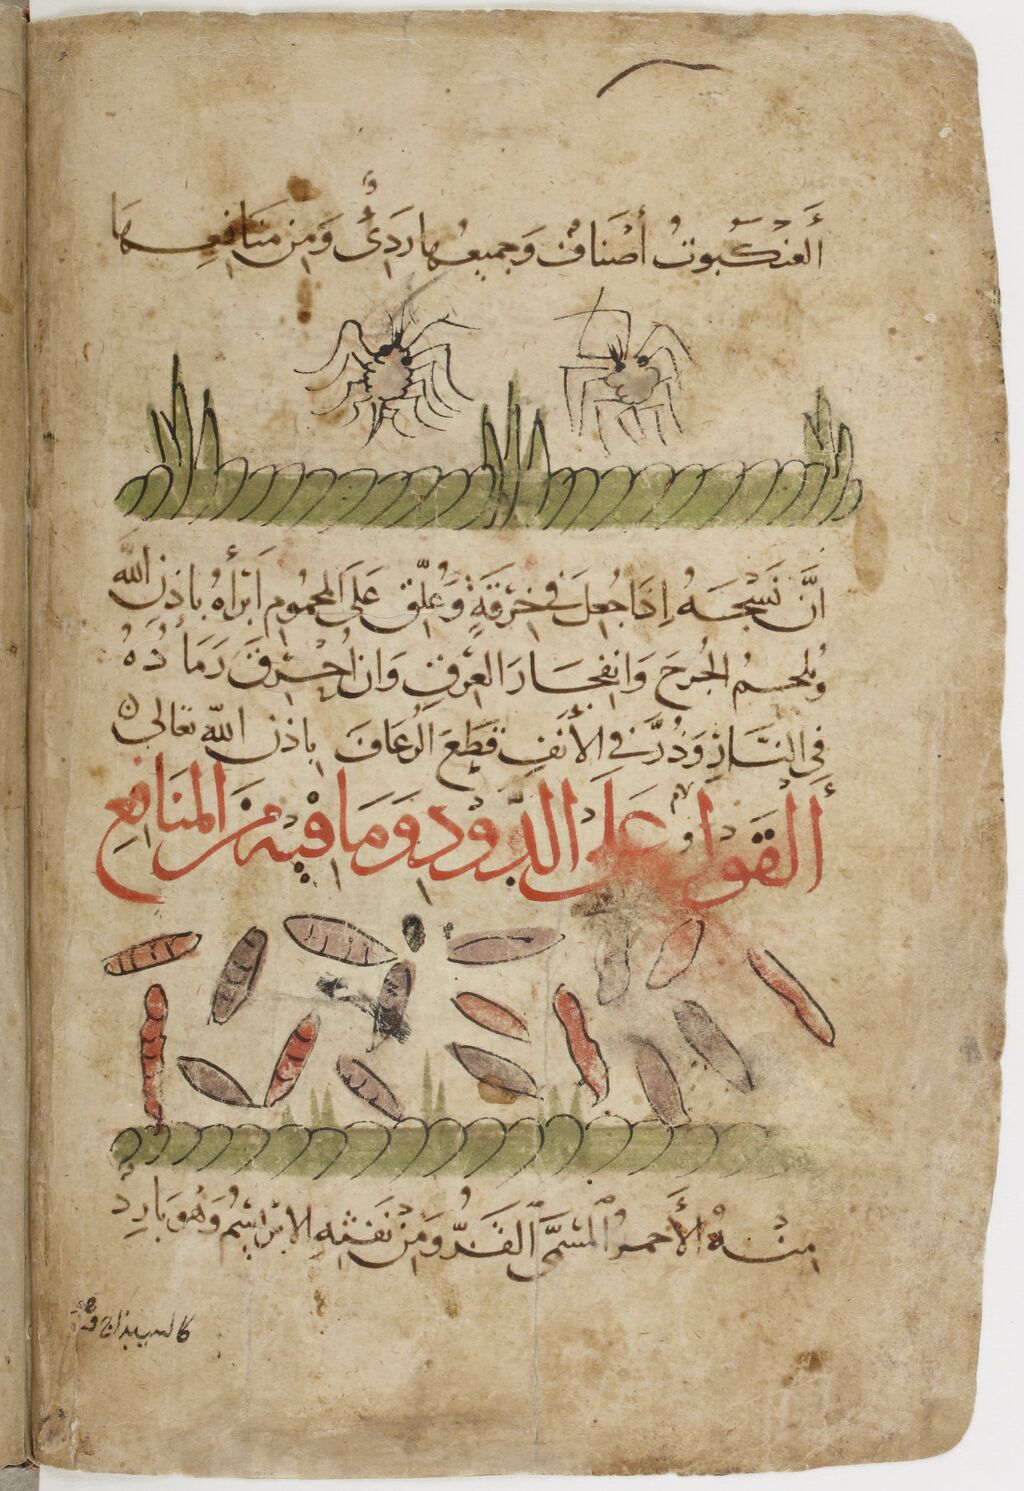 العَنْكَبُوتُ أَصْنَافٌ وَجَمِيعُهَا رَدِيءٌ وَمِنْ مَنَافِعِهَا
اِنَّ نَسْجَهُ إِذَا جُعِلَ فِي خِرْقَةٍ وَعُلِّقَ عَلَى المحمُومِ اَبْرَأَهُ بِاذنِ الله
وَيُلحِمُ الجُرحَ وَانفِجَارَ العِرْقِ وَانْ اُحْرِقَ رَمَادُهُ
فِي النَّارِ وَذُرَّ فِي الأَنفِ قَطَعَ الرُعَافَ بِاذنِ اللهِ تعَالى
اَلْقَوْلُ عَلَى الدُّودِ وَمَا فِيهِ مِنَ المنَافِعِ
مِنْهُ الأَحمَرُ المُسَمَّى القَزُّ وَمِنْ نَفَثِهِ الابْرِيسَمُ وَهُوَ بَارِدٌ
كالسبيذاج